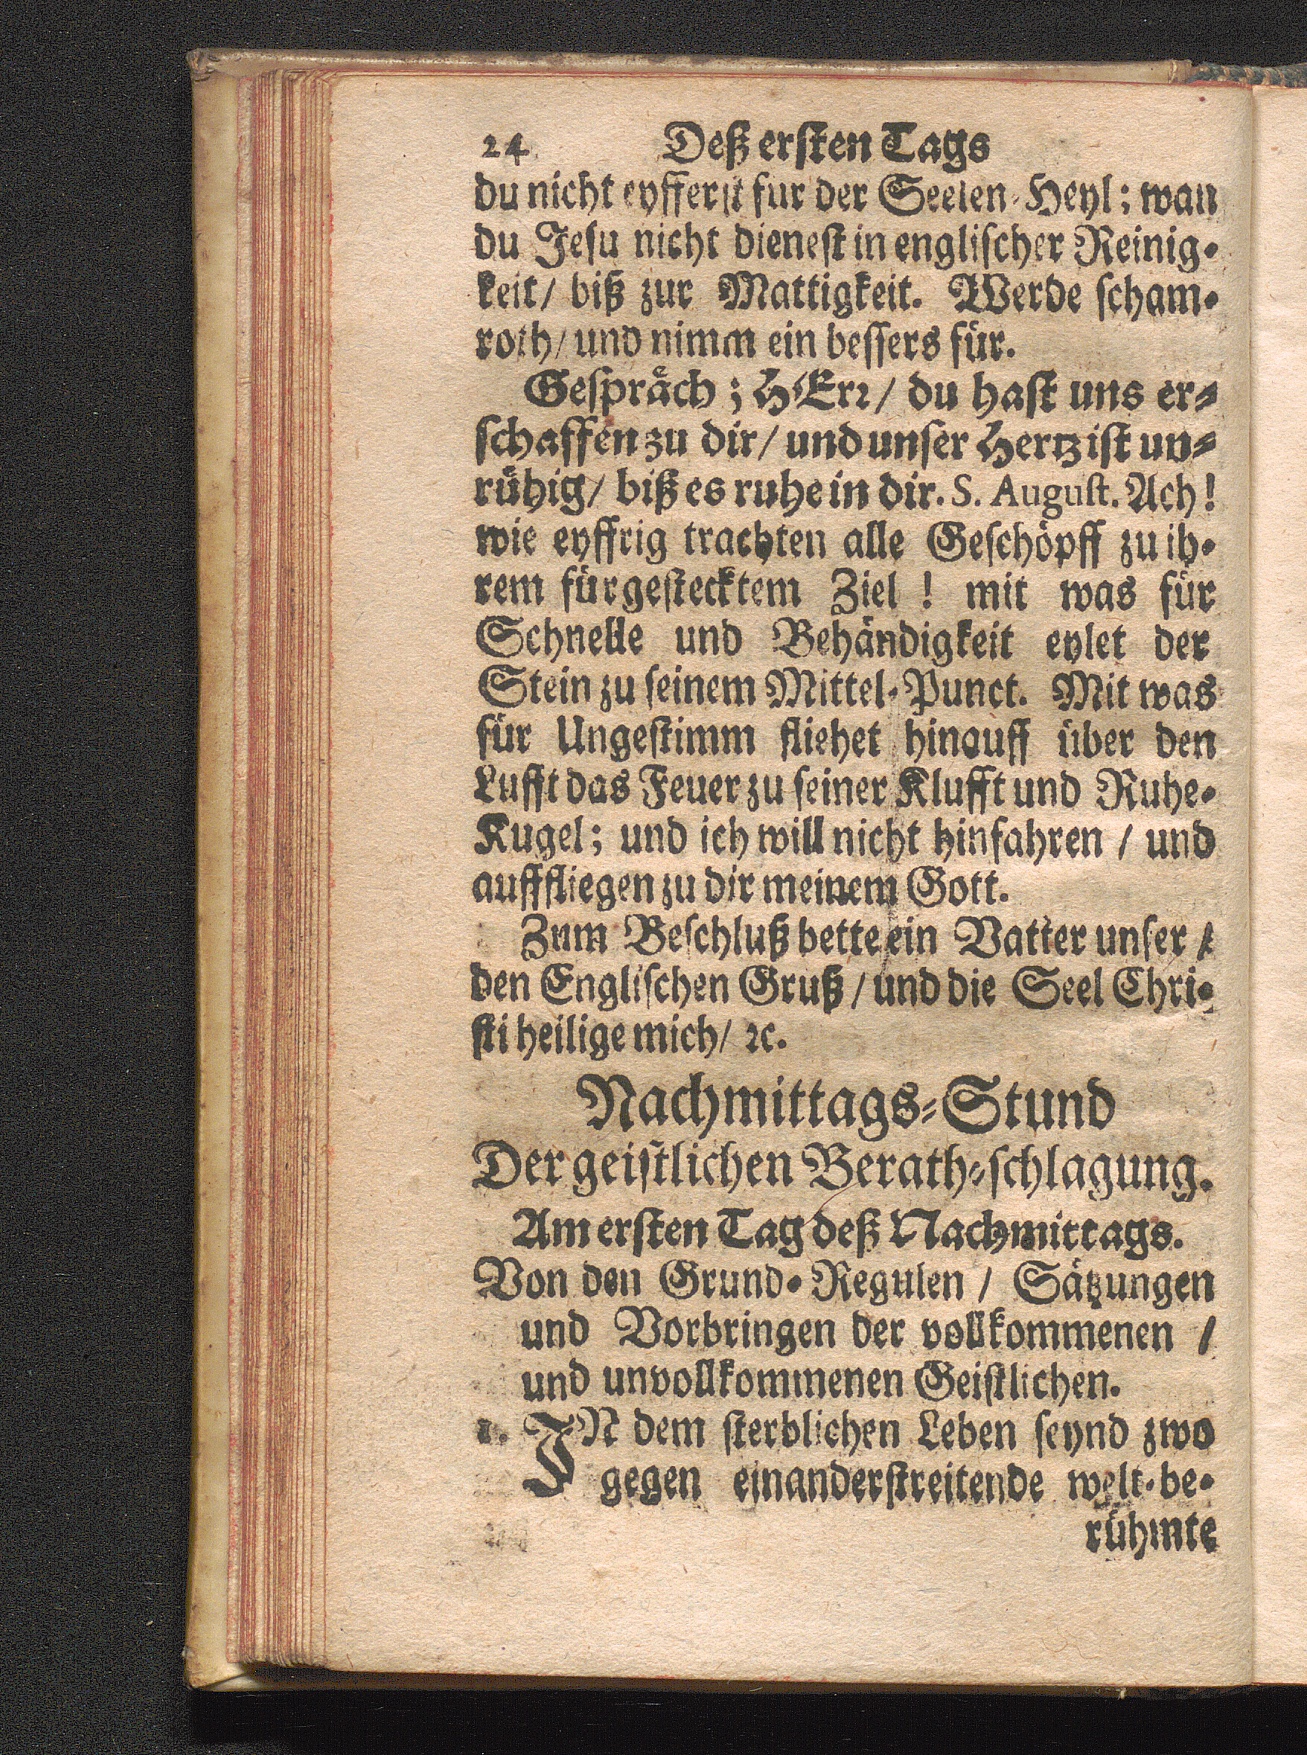 24 Deß ersten Tags
du nicht eyfferst fur der Seelen-Heyl; wan
du Jesu nicht dienest in englischer Reinig-
keit/ biß zur Mattigkeit. Werde scham-
roth/ und nimm ein bessers für.
Gespräch; HErr/ du hast uns er-
schaffen zu dir/ und unser Hertz ist un-
rühig/ biß es ruhe in dir. S. August. Ach!
wie eyffrig trachten alle Geschöpff zu ih-
rem fürgestecktem Ziel! mit was für
Schnelle und Behändigkeit eylet der
Stein zu seinem Mittel-Punct. Mit was
für Ungestimm fliehet hinauff über den
Lufft das Feuer zu seiner Klufft und Ruhe-
Kugel; und ich will nicht hinfahren / und
aufffliegen zu dir meinem Gott.
Zum Beschluß bette ein Vatter unser /
den Englischen Gruß / und die Seel Chri-
sti heilige mich/ ꝛc.
Nachmittags-Stund
Der geistlichen Berath-schlagung.
Am ersten Tag deß Nachmittags.
Von den Grund-Regulen / Sätzungen
und Vorbringen der vollkommenen /
und unvollkommenen Geistlichen.
1. JN dem sterblichen Leben seynd zwo
gegen einanderstreitende welt-be-
rühmte